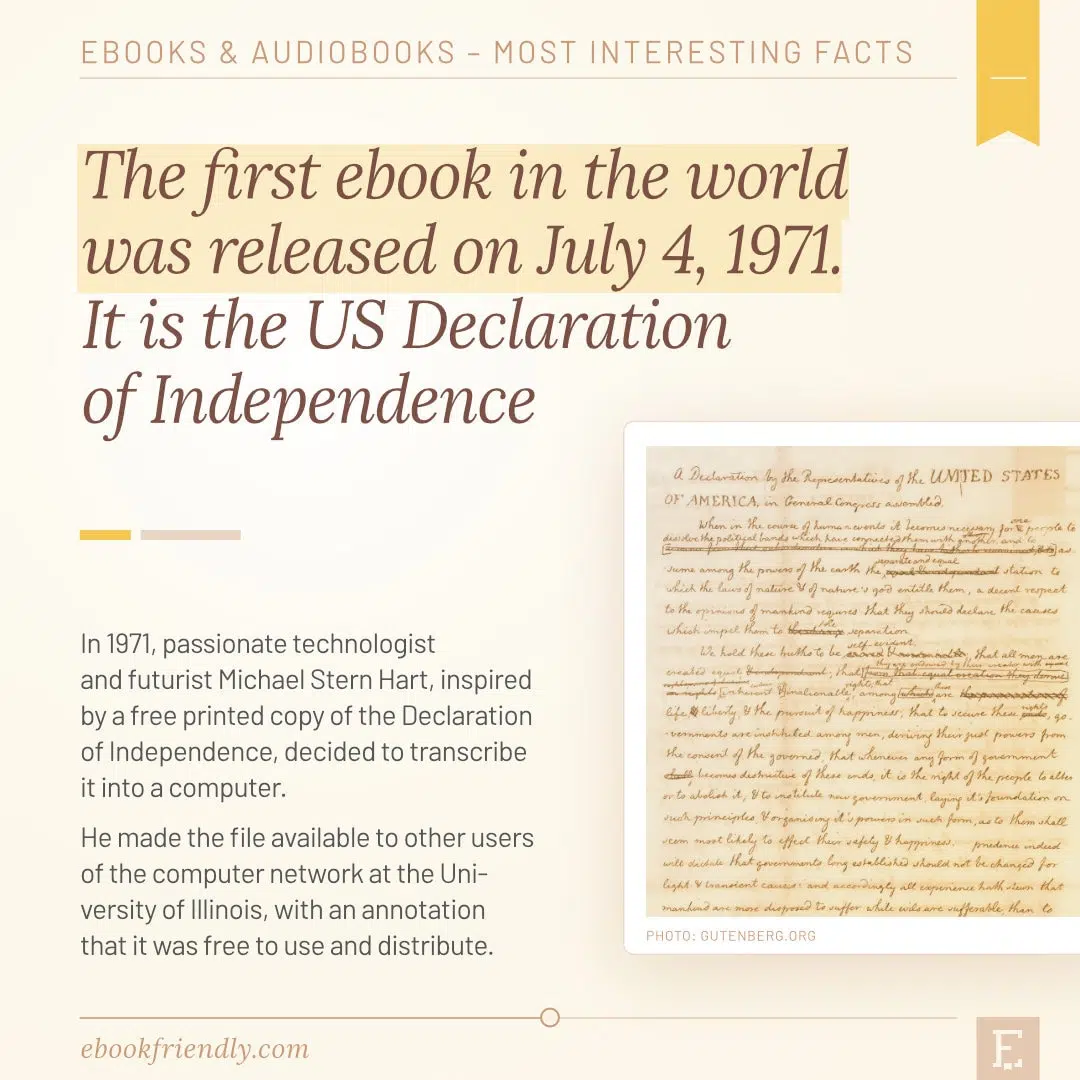 EBOOKS & AUDIOBOOKS – MOST INTERESTING FACTS
The first ebook in the world
was released on July 4, 1971.
It is the US Declaration
of Independence
In 1971, passionate technologist
and futurist Michael Stern Hart, inspired
by a free printed copy of the Declaration
of Independence, decided to transcribe
it into a computer.
He made the file available to other users
of the computer network at the Uni-
versity of Illinois, with an annotation
that it was free to use and distribute.
A Declaration by the Representatives of the UNITED STATES
OF AMERICA, in General Congress assembled.
When in the course of human events it becomes necessary for people to
dissolve the political bands which have connected them with another, and to
as-
separate and equal
sume among the powers of the earth the station to
which the laws of nature & of nature's god entitle them, a decent respect
to the opinions of mankind requires that they should declare the causes
which impel them to the separation.
self-evident
We hold these truths to be that all men are
created equal
life, & liberty, & the pursuit of happiness; that to secure these rights, go-
vernments are instituted among men, deriving their just powers from
the consent of the governed; that whenever any form of government
becomes destructive of these ends, it is the right of the people to alter
or to abolish it, & to institute new government, laying it's foundation on
such principles & organising it's powers in such form, as to them shall
seem most likely to effect their safety & happiness. prudence indeed
will dictate that governments long established should not be changed for
light & transient causes: and accordingly all experience hath shewn that
mankind are more disposed to suffer while evils are sufferable, than to
PHOTO: GUTENBERG.ORG
ebookfriendly.com
E